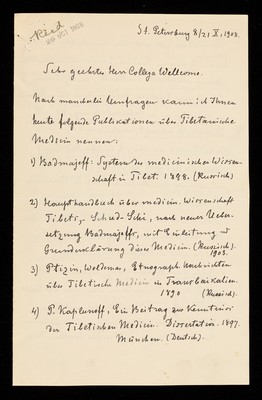 Red
26 OCT 1908
St. Petersburg 8/21 X, 1908.
Sehr geehrter Herr College Wellcome.
Nach mancherlei Umfragen kann ich Ihnen
heute folgende Publikationen über Tibetanische
Medicin nennen:
1) Badmajeff: System der medicinischen Wissen-
schaft in Tibet. 1898. (Russisch)
2) Haupthandbuch über medicin. Wissenschaft
Tibets, Schud-Schi, nach neuer Ueber-
setzung Badmajeffs, mit Einleitung u
Grunderklärung dieser Medicin. (Russisch).
1903.
3) Ptizin, Woldemar, Etnograph. Nachrichten
über Tibetische Medicin in Transbaikalien.
1890 (Russisch).
4) P. Kaplunoff, Ein Beitrag zur Kenntniss
der Tibetischen Medicin. Dissertation. 1897.
München. (Deutsch).